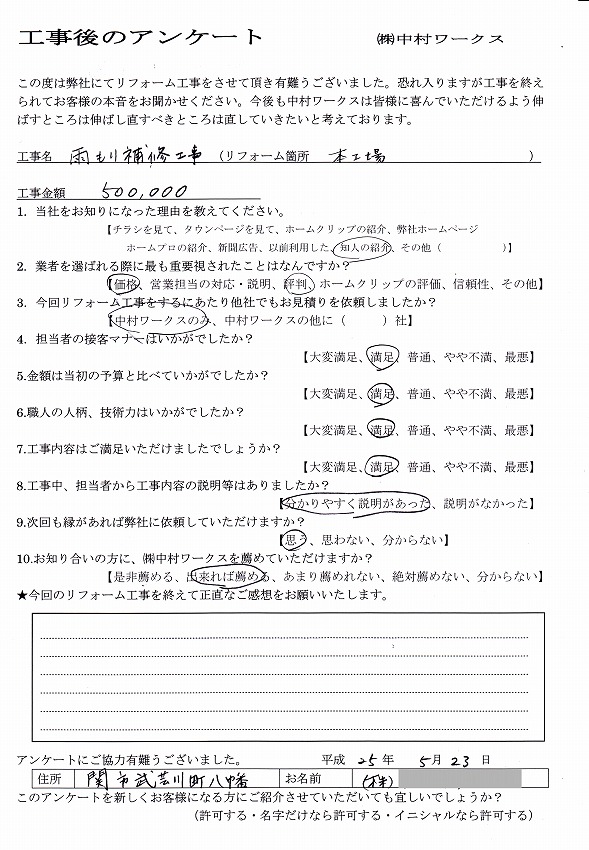 工事後のアンケート　㈱中村ワークス
この度は弊社にてリフォーム工事をさせて頂き有難うございました。恐れ入りますが工事を終え
られてお客様の本音をお聞かせください。今後も中村ワークスは皆様に喜んでいただけるよう伸
ばすところは伸ばし直すべきところは直していきたいと考えております。
工事名　雨もり補修工事　（リフォーム箇所　本工場　）
工事金額　500,000
1．当社をお知りになった理由を教えてください。
【チラシを見て、タウンページを見て、ホームクリップの紹介、弊社ホームページ
ホームプロの紹介、新聞広告、以前利用した、知人の紹介、その他（　）】
2．業者を選ばれる際に最も重要視されたことはなんですか？
【価格、営業担当の対応・説明、評判、ホームクリップの評価、信頼性、その他】
3．今回リフォーム工事をするにあたり他社でもお見積りを依頼しましたか？
【中村ワークスのみ、中村ワークスの他に（　）社】
4．担当者の接客マナーはいかがでしたか？
【大変満足、満足、普通、やや不満、最悪】
5.金額は当初の予算と比べていかがでしたか？
【大変満足、満足、普通、やや不満、最悪】
6.職人の人柄、技術力はいかがでしたか？
【大変満足、満足、普通、やや不満、最悪】
7.工事内容はご満足いただけましたでしょうか？
【大変満足、満足、普通、やや不満、最悪】
8.工事中、担当者から工事内容の説明等はありましたか？
【分かりやすく説明があった、説明がなかった】
9.次回も縁があれば弊社に依頼していただけますか？
【思う、思わない、分からない】
10.お知り合いの方に、㈱中村ワークスを薦めていただけますか？
【是非薦める、出来れば薦める、あまり薦めれない、絶対薦めない、分からない】
★今回のリフォーム工事を終えて正直なご感想をお願いいたします。
アンケートにご協力有難うございました。　平成　25年　5月23日
住所　関市武芸川町八幡　お名前　(株)
このアンケートを新しくお客様になる方にご紹介させていただいても宜しいでしょうか？
（許可する・名字だけなら許可する・イニシャルなら許可する）